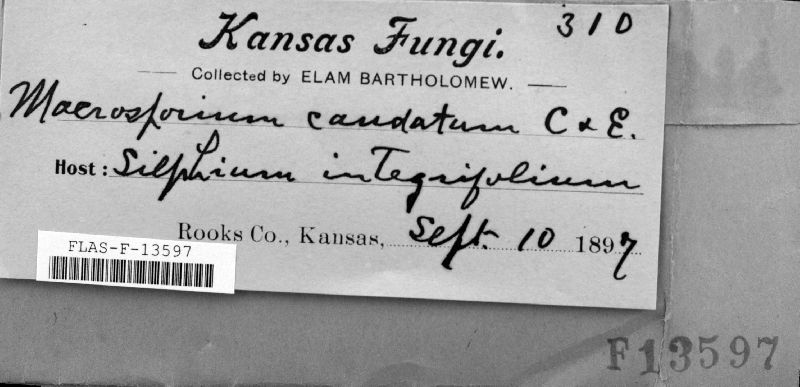 310
Kansas Fungi.
Collected by ELAM BARTHOLOMEW.
Macrosporium caudatum C & E.
Host: Silphium integrifolium
Rooks Co., Kansas, Sept. 10 1897
FLAS-F-13597
F13597